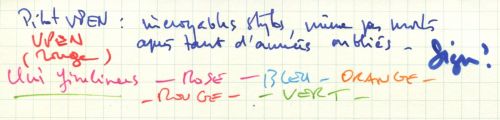 Pilot VPEN : incroyables stylos, même pas morts
VPEN après tant d'années oubliés -
(Rouge)
Uni fineliners - ROSE - BLEU - ORANGE -
- ROUGE - VERT -